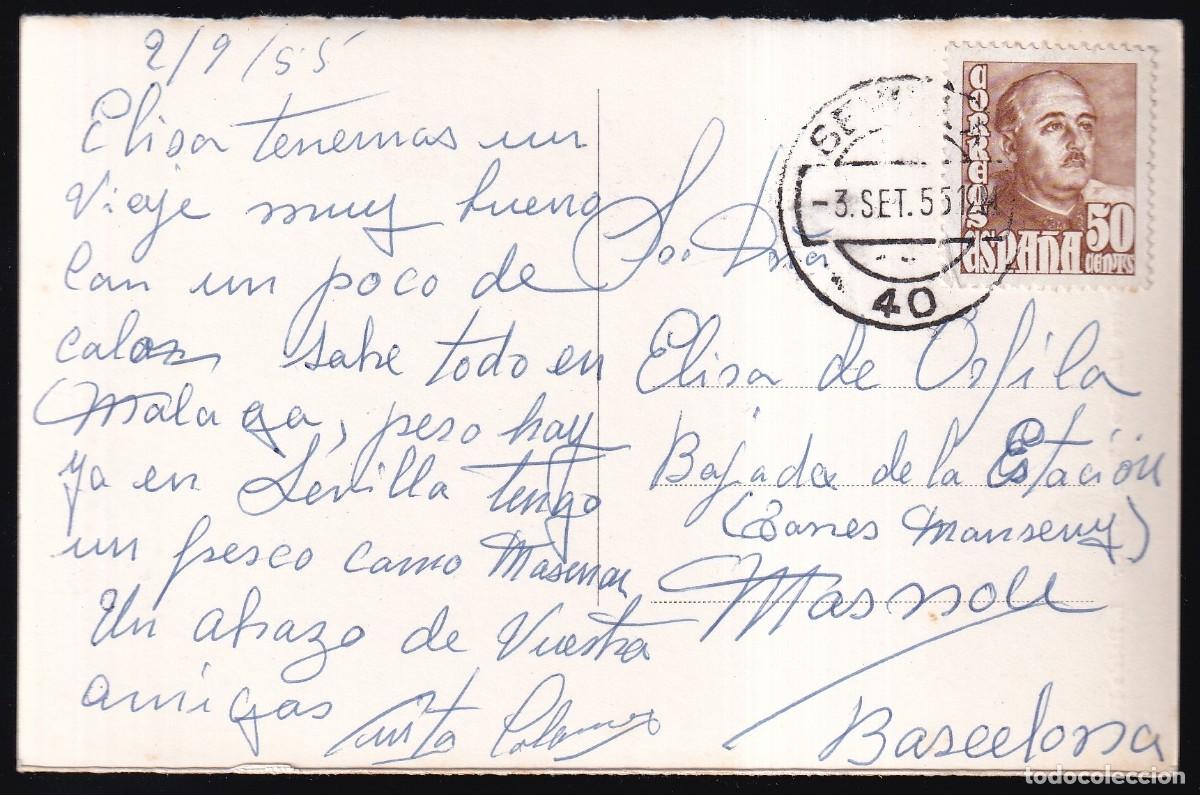 2/9/55
Elisa tenemos un
Viaje muy bueno
Con un poco de
calor sobre todo en
Malaga, pero hoy
ya en Sevilla tengo
un fresco como Masnou
Un abrazo de Vuestra
amigas
CORREOS
ESPAÑA
50
CENTS
-3.SET.55
40
Elisa de Orfila
Bajada de la Estación
(Torres Manseny)
Masnou
Barcelona
todocoleccion